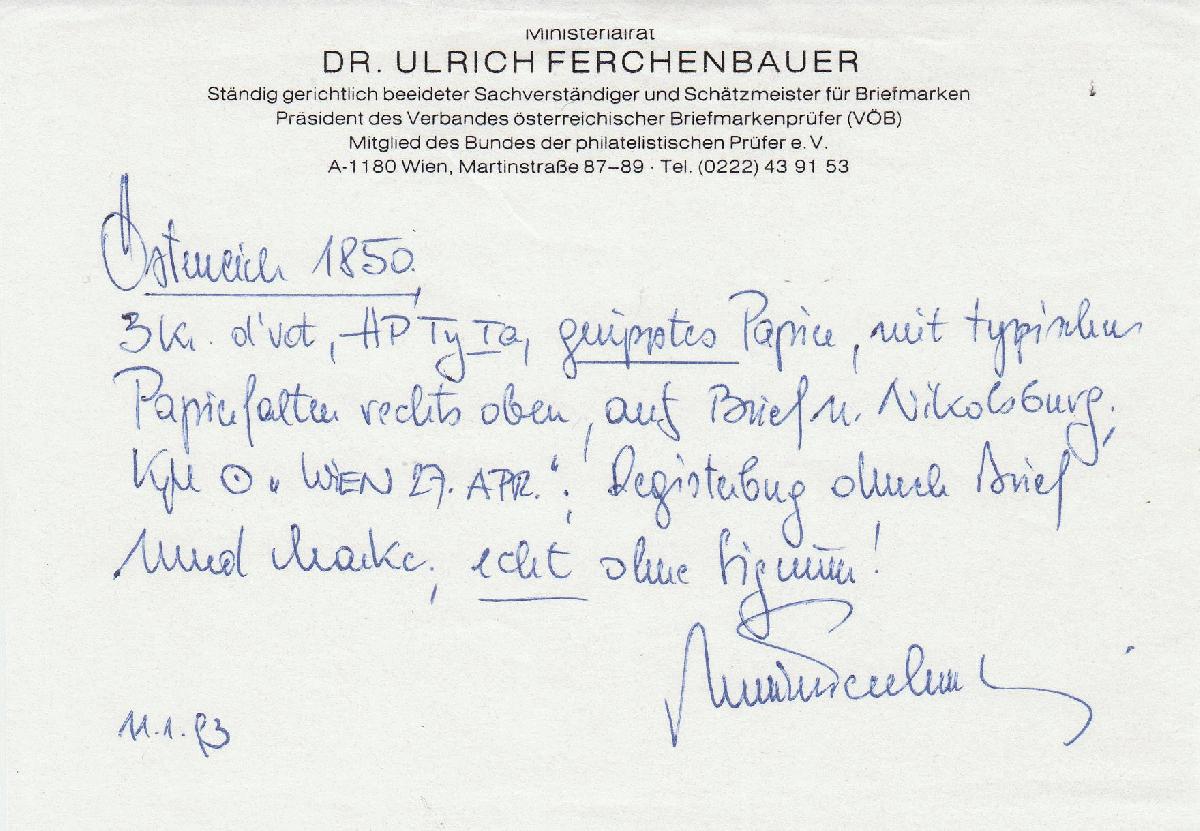 Ministerialrat
DR. ULRICH FERCHENBAUER
Ständig gerichtlich beeideter Sachverständiger und Schätzmeister für Briefmarken
Präsident des Verbandes österreichischer Briefmarkenprüfer (VÖB)
Mitglied des Bundes der philatelistischen Prüfer e. V.
A-1180 Wien, Martinstraße 87–89 · Tel. (0222) 43 91 53
Österreich 1850.
3 Kr. d'rot, HP Ty Ia, geripptes Papier, mit typischen
Papierfalten rechts oben, auf Brief n. Nikolsburg,
"WIEN 27. APR.". Registerbug durch Brief
und Marke, echt ohne Signum!
11.1.93